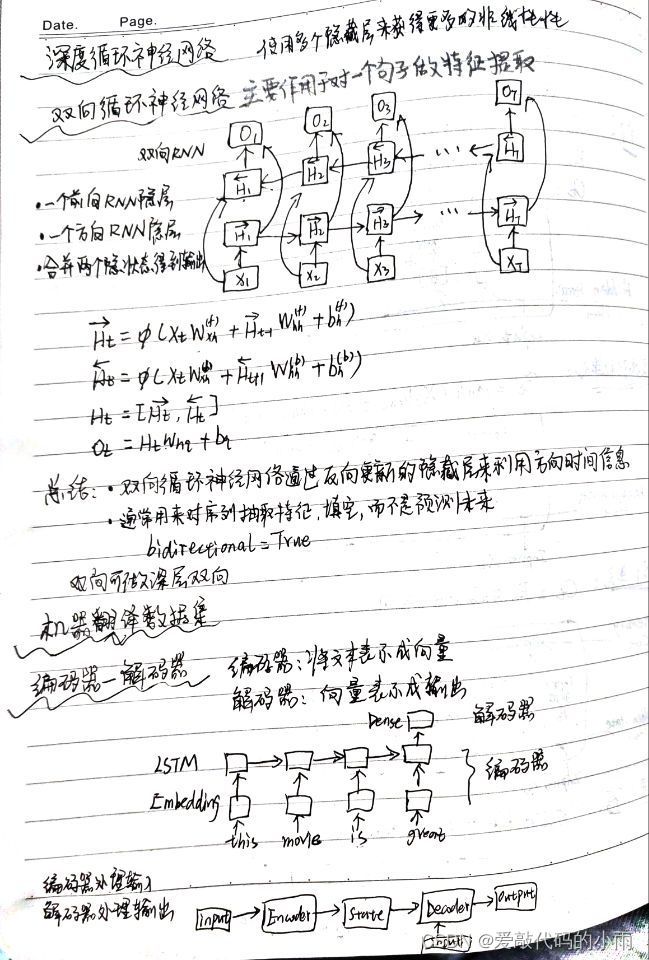 Date. Page.
深度循环神经网络 使用多个隐藏层来获得更多的非线性性
双向循环神经网络 主要作用于对一个句子做特征提取
双向RNN
O1 O2 O3 OT
H1 H2 H3 ... HT
·一个前向RNN隐层
·一个方向RNN隐层
H1 H2 H3 ... HT
·合并两个隐状态得到输出
X1 X2 X3 XT
→Ht = φ(Xt Wxh^(f) + →Ht-1 Whh^(f) + bh^(f))
←Ht = φ(Xt Wxh^(b) + ←Ht+1 Whh^(b) + bh^(b))
Ht = [→Ht, ←Ht]
Ot = Ht Whq + bq
总结: ·双向循环神经网络通过反向更新的隐藏层来利用方向时间信息
·通常用来对序列抽取特征,填空,而不是预测未来
bidirectional=True
双向可做深层双向
机器翻译数据集
编码器-解码器 编码器:将文本表示成向量
解码器:向量表示成输出
Dense 解码器
LSTM 编码器
Embedding
this movie is great
编码器处理输入
解码器处理输出
input Encoder State Decoder output
input
CSDN @爱敲代码的小雨